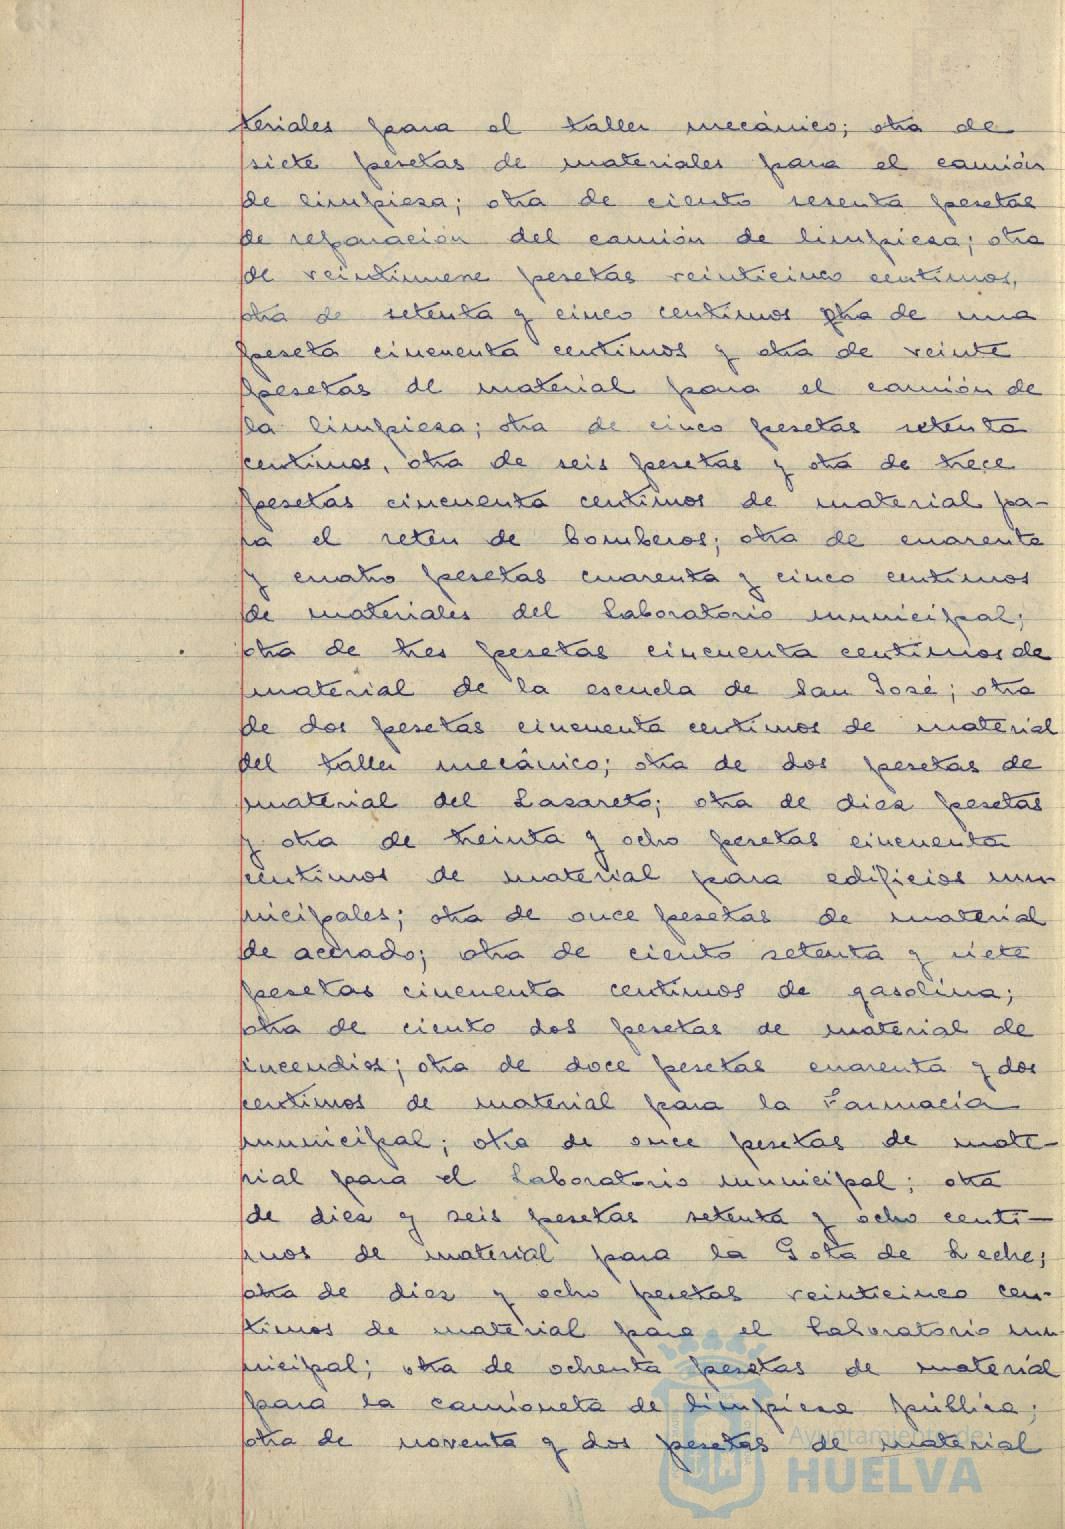 teriales para el taller mecánico; otra de
siete pesetas de materiales para el camión
de limpieza; otra de ciento sesenta pesetas
de reparación del camión de limpieza; otra
de veintinueve pesetas veinticinco centimos,
otra de setenta y cinco centimos otra de una
peseta cincuenta centimos y otra de veinte
pesetas de material para el camión de
la limpieza; otra de cinco pesetas setenta
centimos, otra de seis pesetas y otra de trece
pesetas cincuenta centimos de material pa-
ra el reten de bomberos; otra de cuarenta
y cuatro pesetas cuarenta y cinco centimos
de materiales del Laboratorio municipal;
otra de tres pesetas cincuenta centimos de
material de la escuela de San José; otra
de dos pesetas cincuenta centimos de material
del taller mecánico; otra de dos pesetas de
material del Lazareto; otra de diez pesetas
y otra de treinta y ocho pesetas cincuenta
centimos de material para edificios mu-
nicipales; otra de once pesetas de material
de acerado; otra de ciento setenta y siete
pesetas cincuenta centimos de gasolina;
otra de ciento dos pesetas de material de
incendios; otra de doce pesetas cuarenta y dos
centimos de material para la Farmacia
municipal; otra de once pesetas de mate-
rial para el Laboratorio municipal; otra
de diez y seis pesetas setenta y ocho centi-
mos de material para la Gota de Leche;
otra de diez y ocho pesetas veinticinco cen-
timos de material para el Laboratorio mu-
nicipal; otra de ochenta pesetas de material
para la camioneta de limpieza pública;
otra de noventa y dos pesetas de material
Ayuntamiento de
HUELVA